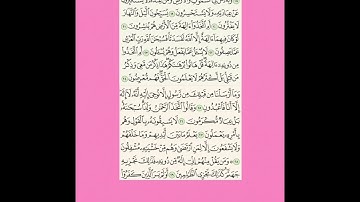 عَنْ عِبَادَتِهِۦ وَلَا يَسْتَحْسِرُونَ ١٩ يُسَبِّحُونَ ٱلَّيْلَ وَٱلنَّهَارَ
لَا يَفْتُرُونَ ٢٠ أَمِ ٱتَّخَذُوٓا۟ ءَالِهَةً مِّنَ ٱلْأَرْضِ هُمْ يُنشِرُونَ ٢١
لَوْ كَانَ فِيهِمَآ ءَالِهَةٌ إِلَّا ٱللَّهُ لَفَسَدَتَا فَسُبْحَٰنَ ٱللَّهِ رَبِّ ٱلْعَرْشِ
عَمَّا يَصِفُونَ ٢٢ لَا يُسْـَٔلُ عَمَّا يَفْعَلُ وَهُمْ يُسْـَٔلُونَ ٢٣ أَمِ ٱتَّخَذُوا۟
مِن دُونِهِۦٓ ءَالِهَةً قُلْ هَاتُوا۟ بُرْهَٰنَكُمْ هَٰذَا ذِكْرُ مَن مَّعِىَ وَذِكْرُ
مَن قَبْلِى بَلْ أَكْثَرُهُمْ لَا يَعْلَمُونَ ٱلْحَقَّ فَهُم مُّعْرِضُونَ ٢٤
وَمَآ أَرْسَلْنَا مِن قَبْلِكَ مِن رَّسُولٍ إِلَّا نُوحِىٓ إِلَيْهِ أَنَّهُۥ لَآ إِلَٰهَ
إِلَّآ أَنَا۠ فَٱعْبُدُونِ ٢٥ وَقَالُوا۟ ٱتَّخَذَ ٱلرَّحْمَٰنُ وَلَدًا سُبْحَٰنَهُۥ
بَلْ عِبَادٌ مُّكْرَمُونَ ٢٦ لَا يَسْبِقُونَهُۥ بِٱلْقَوْلِ وَهُم
بِأَمْرِهِۦ يَعْمَلُونَ ٢٧ يَعْلَمُ مَا بَيْنَ أَيْدِيهِمْ وَمَا خَلْفَهُمْ
وَلَا يَشْفَعُونَ إِلَّا لِمَنِ ٱرْتَضَىٰ وَهُم مِّنْ خَشْيَتِهِۦ مُشْفِقُونَ
٢٨ وَمَن يَقُلْ مِنْهُمْ إِنِّىٓ إِلَٰهٌ مِّن دُونِهِۦ فَذَٰلِكَ نَجْزِيهِ
جَهَنَّمَ كَذَٰلِكَ نَجْزِى ٱلظَّٰلِمِينَ ٢٩ أَوَلَمْ يَرَ ٱلَّذِينَ كَفَرُوٓا۟